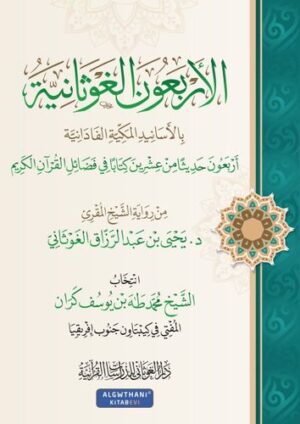 الأربعون الغوثانية
بالأسانيد المكية الفادانية
أربعون حديثا من عشرين كتابا في فضائل القرآن الكريم
من رواية الشيخ المقرئ
د. يحيى بن عبد الرزاق الغوثاني
انتخاب
الشيخ محمد طه بن يوسف كران
المفتي في كيبتاون جنوب إفريقيا
دار الغوثاني للدراسات القرآنية
ALGWTHANI®
KITABEVI